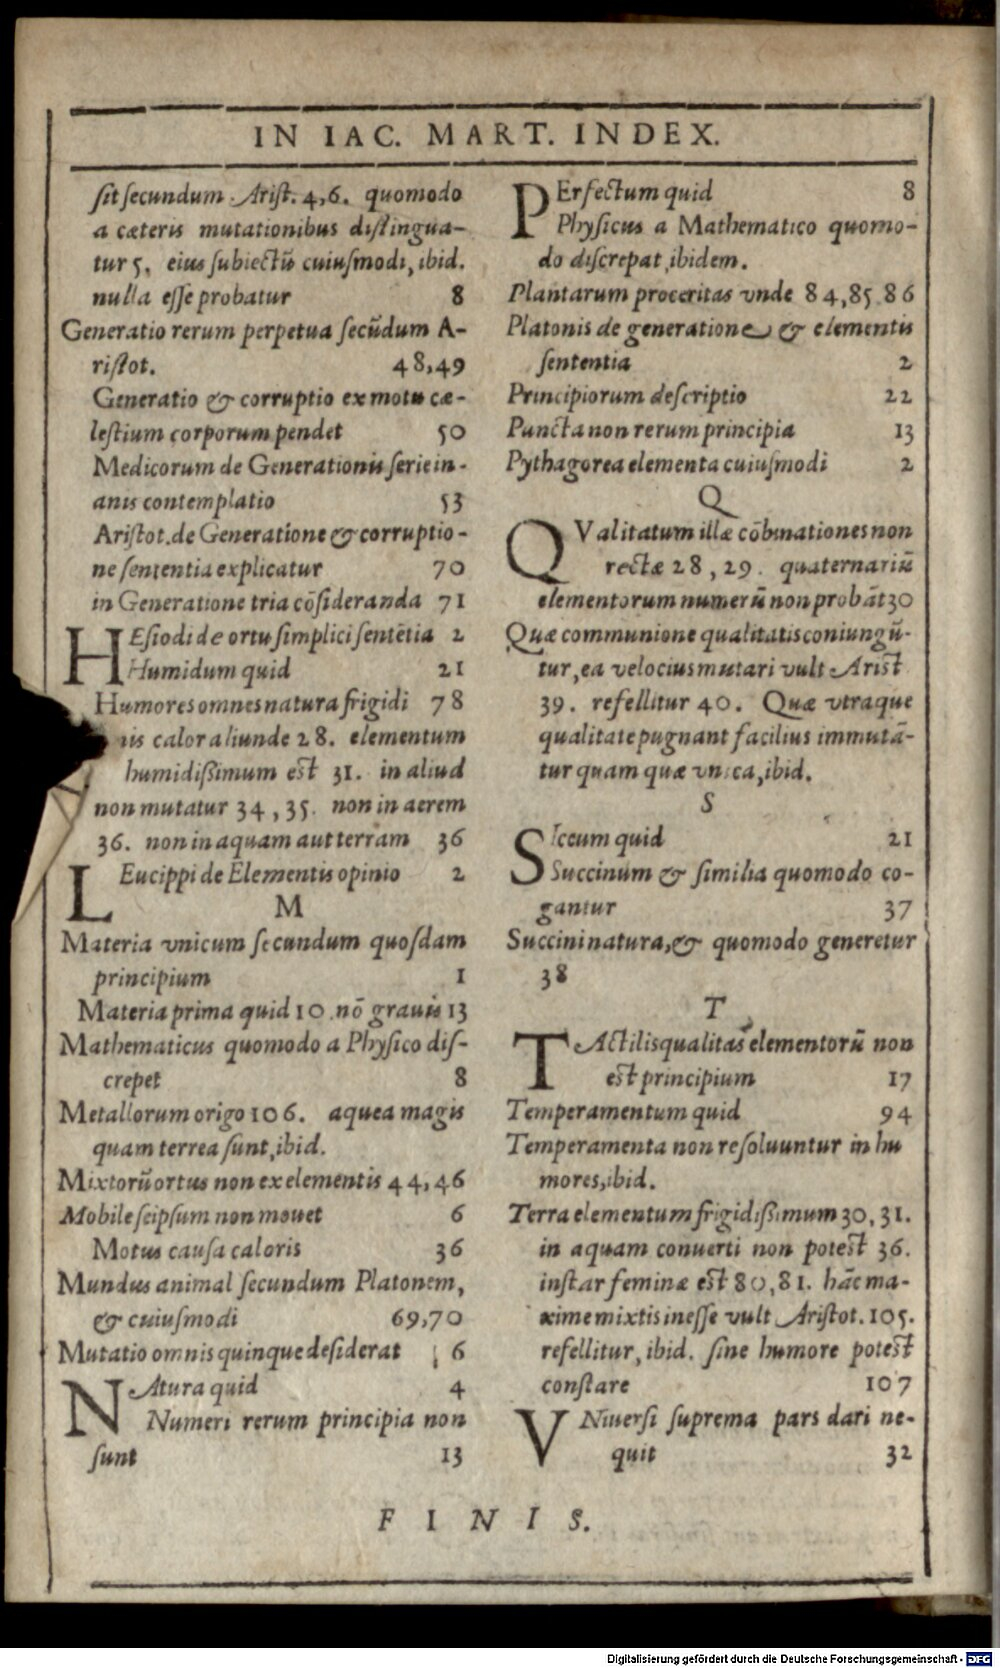 IN IAC. MART. INDEX.
ſit ſecundum Ariſt. 4,6. quomodo
a cæteris mutationibus diſtingua-
tur 5. eius ſubiectũ cuiuſmodi, ibid.
nulla eſſe probatur 8
Generatio rerum perpetua ſecũdum A-
riſtot. 48,49
Generatio & corruptio ex motu cæ-
leſtium corporum pendet 50
Medicorum de Generationis ſerie in-
anis contemplatio 53
Ariſtot. de Generatione & corruptio-
ne ſententia explicatur 70
in Generatione tria cõſideranda 71
HEſiodi de ortu ſimplici ſentẽtia 2
Humidum quid 21
Humores omnes natura frigidi 78
iis calor aliunde 28. elementum
humidiſſimum eſt 31. in aliud
non mutatur 34, 35. non in aerem
36. non in aquam aut terram 36
LEucippi de Elementis opinio 2
M
Materia vnicum ſecundum quoſdam
principium 1
Materia prima quid 10. nõ grauis 13
Mathematicus quomodo a Phyſico diſ-
crepet 8
Metallorum origo 106. aquea magis
quam terrea ſunt, ibid.
Mixtorũ ortus non ex elementis 44, 46
Mobile ſeipſum non mouet 6
Motus cauſa caloris 36
Mundus animal ſecundum Platonem,
& cuiuſmodi 69,70
Mutatio omnis quinque deſiderat 6
NAtura quid 4
Numeri rerum principia non
ſunt 13
PErfectum quid 8
Phyſicus a Mathematico quomo-
do diſcrepat, ibidem.
Plantarum proceritas vnde 84,85 86
Platonis de generatione & elementis
ſententia 2
Principiorum deſcriptio 22
Puncta non rerum principia 13
Pythagorea elementa cuiuſmodi 2
Q
QValitatum illæ cõbinationes non
rectæ 28, 29. quaternariũ
elementorum numerũ non probãt 30
Quæ communione qualitatis coniungũ-
tur, ea velocius mutari vult Ariſt
39. refellitur 40. Quæ vtraque
qualitate pugnant facilius immutã-
tur quam quæ vnica, ibid.
S
SIccum quid 21
Succinum & ſimilia quomodo co-
gantur 37
Succini natura, & quomodo generetur
38
T
TActilis qualitas elementorũ non
eſt principium 17
Temperamentum quid 94
Temperamenta non reſoluuntur in hu
mores, ibid.
Terra elementum frigidiſſimum 30, 31.
in aquam conuerti non poteſt 36.
inſtar feminæ eſt 80, 81. hãc ma-
xime mixtis ineſſe vult Ariſtot. 105.
refellitur, ibid. ſine humore poteſt
conſtare 107
VNiuerſi ſuprema pars dari ne-
quit 32
FINIS.
Digitalisierung gefördert durch die Deutsche Forschungsgemeinschaft - DFG